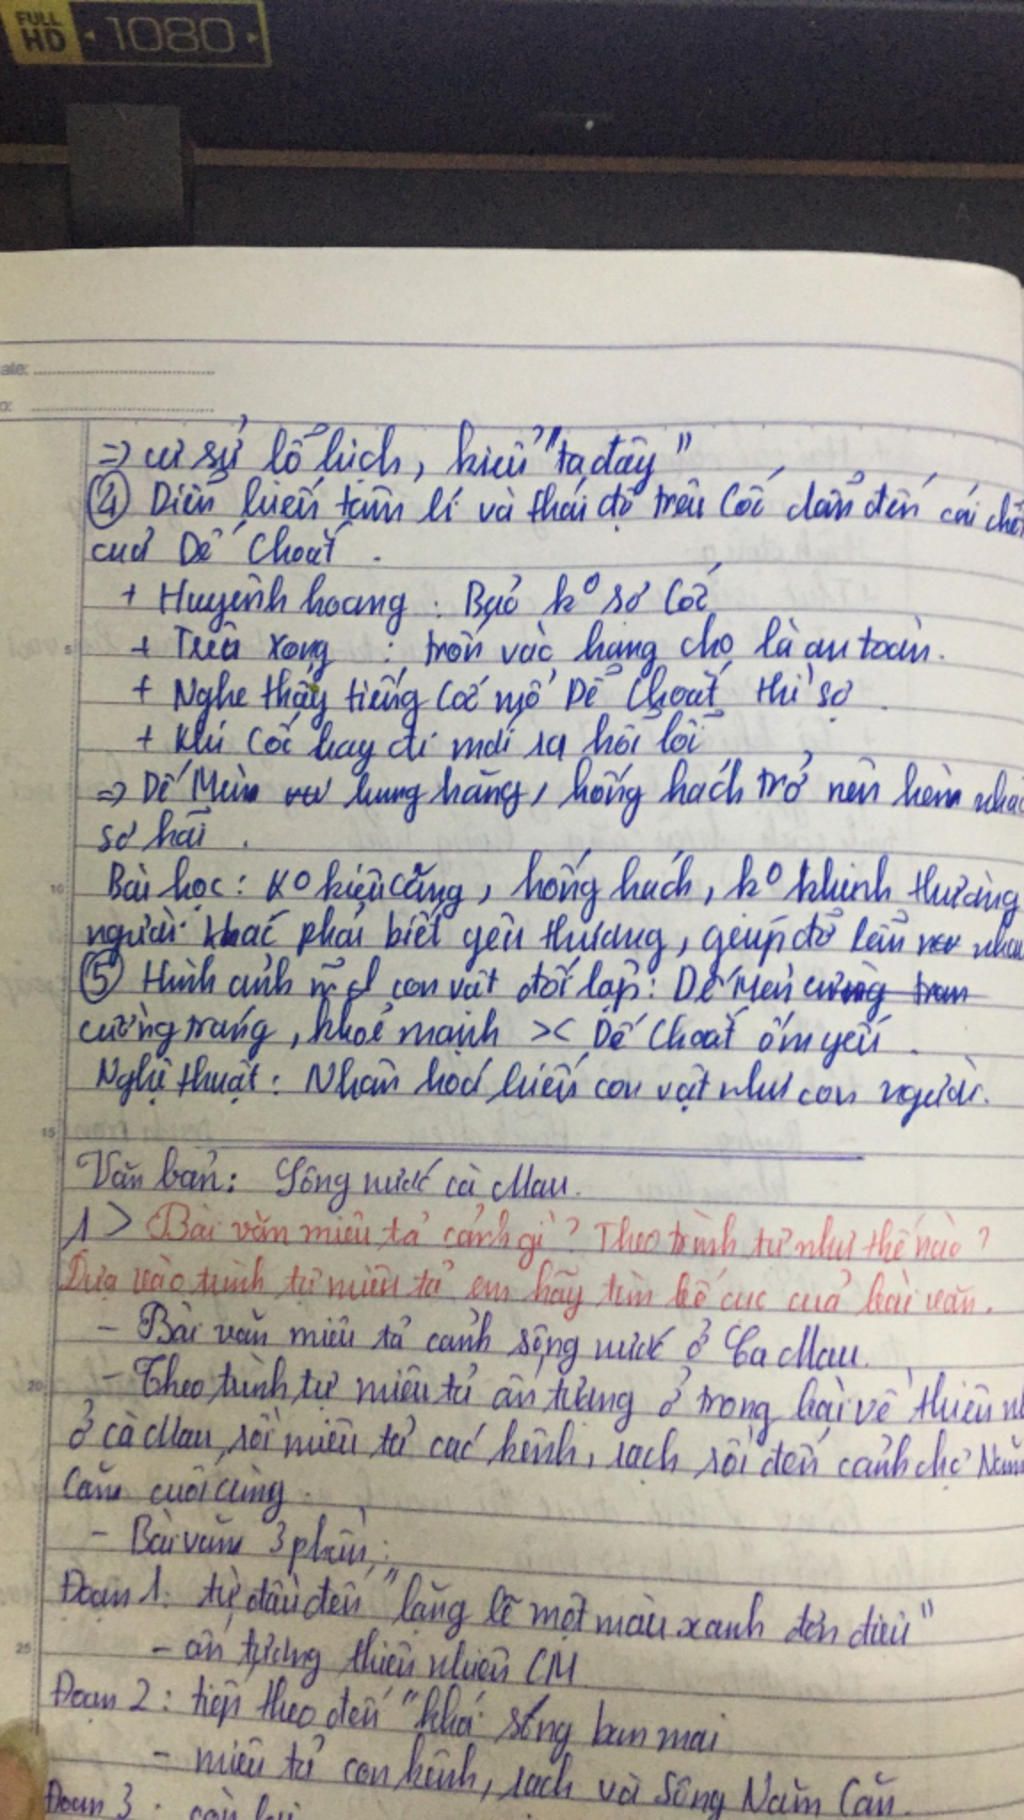 FULL HD 1080
ate:
o:
=> cư sử lố lịch, kiểu "ta đây"
④ Diễn biến tâm lí và thái độ trêu Cốc dẫn đến cái chế
cuả Dế Choắt.
+ Huyênh hoang : Bảo k° sợ Cốc
+ Trêu xong : trốn vào hang cho là an toàn.
+ Nghe thấy tiếng Cốc mổ Dế Choắt thì sợ.
+ Khi Cốc bay đi mới ra hối lỗi
=> Dế Mèn hung hăng, hống hách trở nên hèn nhá
sợ hãi.
Bài học: K° kiêu căng, hống hách, k° khinh thường
người khác phải biết yêu thương, giúp đỡ lẫn nhau
⑤ Hình ảnh con vật đối lập: Dế Mèn cường tran
cường tráng, khoẻ mạnh >< Dế Choắt ốm yếu.
Nghệ thuật: Nhân hoá biến con vật như con người.
Văn bản: Sông nước cà Mau.
1> Bài văn miêu tả cảnh gì? Theo trình tự như thế nào?
Dựa vào trình tự miêu tả em hãy tìm bố cục cuả bài văn.
- Bài văn miêu tả cảnh sông nước ở Ca Mau.
- Theo trình tự miêu tả ấn tượng ở trong bài về thiên nh
ở cà Mau, rồi miêu tả các kênh, rạch rồi đến cảnh chợ Năm
Căn cuối cùng.
- Bài văn 3 phần:
Đoạn 1: từ đầu đến "lặng lẽ một màu xanh đơn điệu"
- ấn tượng thiên nhiên CM
Đoạn 2: tiếp theo đến "khói sóng ban mai
- miêu tả con kênh, rạch và Sông Năm Căn.
Đoạn 3: còn lại
5
10
15
20
25